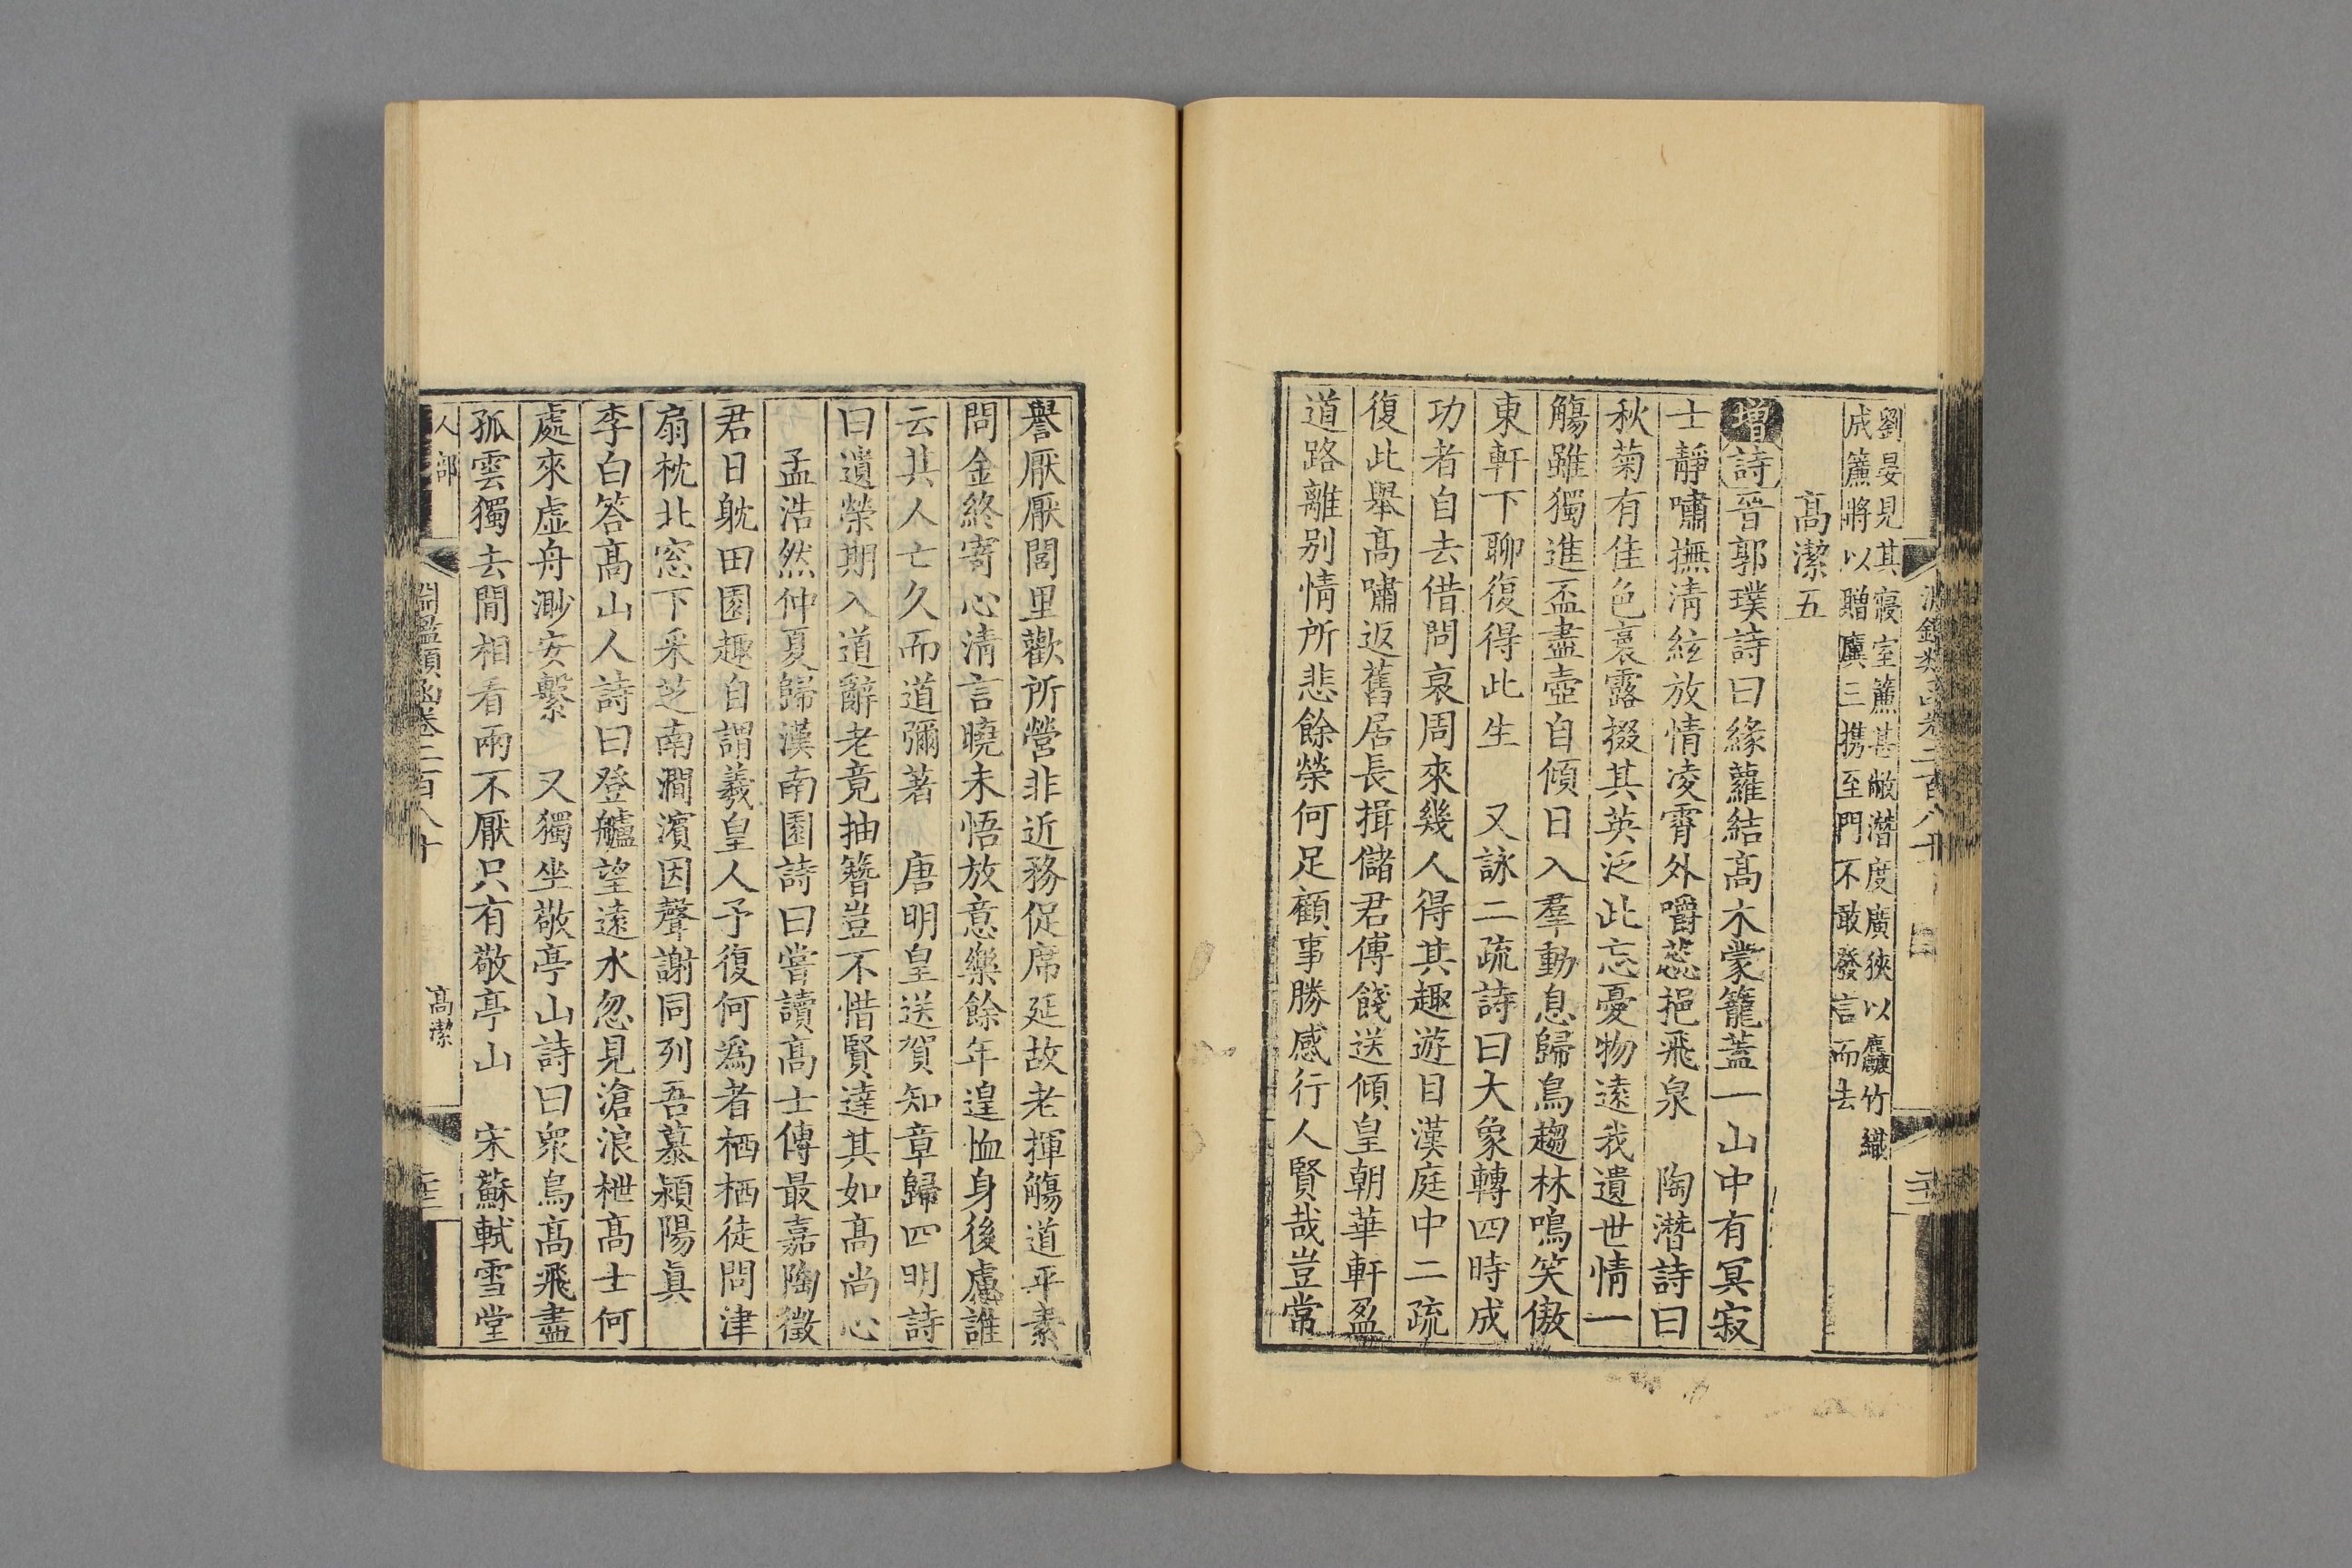 劉晏見其寢室簾甚敝潛度廣狹以麤竹織
成簾將以贈廙三携至門不敢發言而去
高潔五
增詩晉郭璞詩曰緣蘿結高木蒙籠蓋一山中有冥寂
士靜嘯撫清絃放情凌霄外嚼蕊挹飛泉 陶潛詩曰
秋菊有佳色裛露掇其英泛此忘憂物遠我遺世情一
觴雖獨進盃盡壺自傾日入羣動息歸鳥趨林鳴笑傲
東軒下聊復得此生 又詠二疏詩曰大象轉四時成
功者自去借問裒周來幾人得其趣遊目漢庭中二疏
復此舉高嘯返舊居長揖儲君傅餞送傾皇朝華軒盈
道路離別情所悲餘榮何足顧事勝感行人賢哉豈常
譽厭厭閭里歡所營非近務促席延故老揮觴道平素
問金終寄心清言曉未悟放意樂餘年遑恤身後慮誰
云其人亡久而道彌著 唐明皇送賀知章歸四明詩
曰遺榮期入道辭老竟抽簪豈不惜賢達其如高尚心
孟浩然仲夏歸漢南園詩曰嘗讀高士傳最嘉陶徵
君日躭田園趣自謂羲皇人予復何爲者栖栖徒問津
扇枕北窓下采芝南澗濱因聲謝同列吾慕潁陽眞
李白答高山人詩曰登艫望遠水忽見滄浪枻高士何
處來虛舟渺安繫 又獨坐敬亭山詩曰眾鳥高飛盡
孤雲獨去閒相看兩不厭只有敬亭山 宋蘇軾雪堂
人部
淵鑑類函卷二百八十
高潔